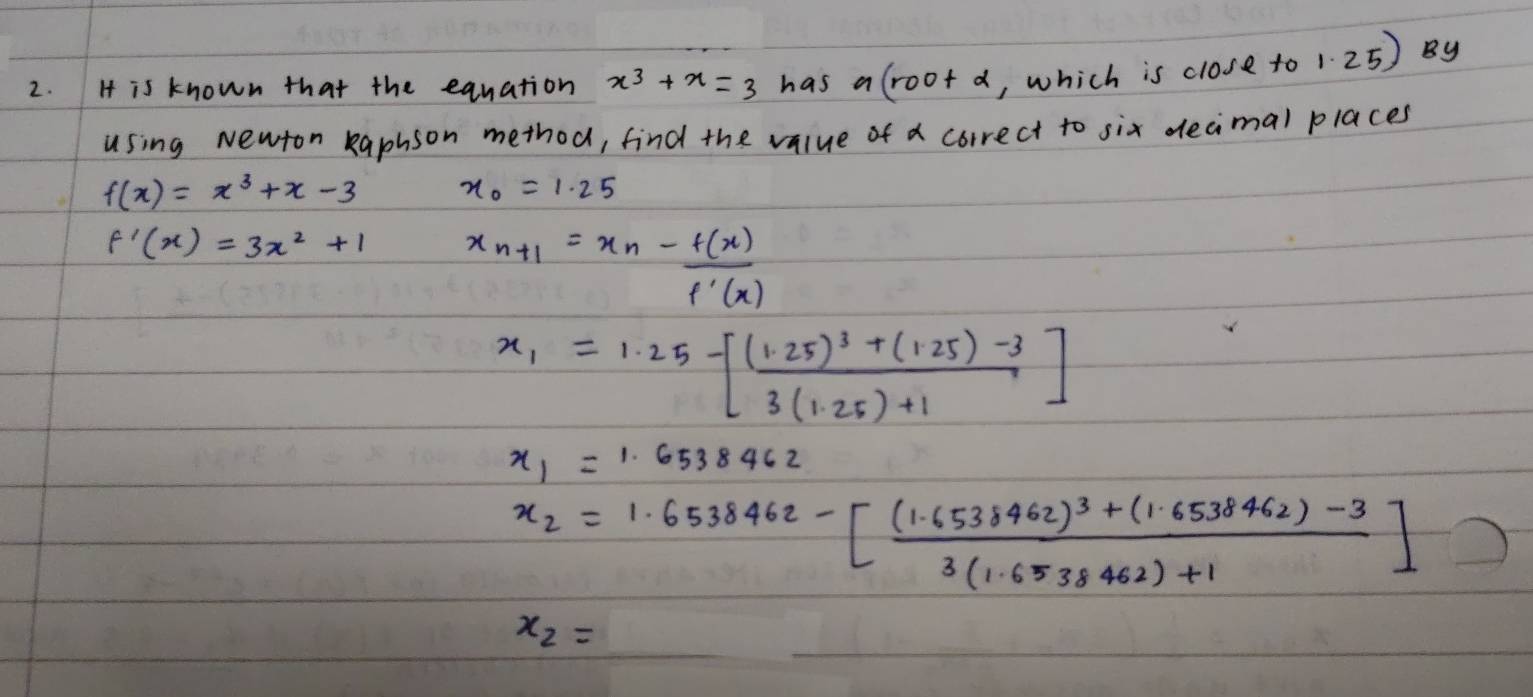 2. It is known that the equation x³ + x = 3 has a (root α, which is close to 1.25) By
using Newton Raphson method, find the value of α correct to six decimal places
f(x) = x³ + x - 3 x₀ = 1.25
f'(x) = 3x² + 1 xₙ₊₁ = xₙ - f(x)/f'(x)
x₁ = 1.25 - [((1.25)³ + (1.25) - 3)/(3(1.25) + 1)]
x₁ = 1.6538462
x₂ = 1.6538462 - [((1.6538462)³ + (1.6538462) - 3)/(3(1.6538462) + 1)]
x₂ =